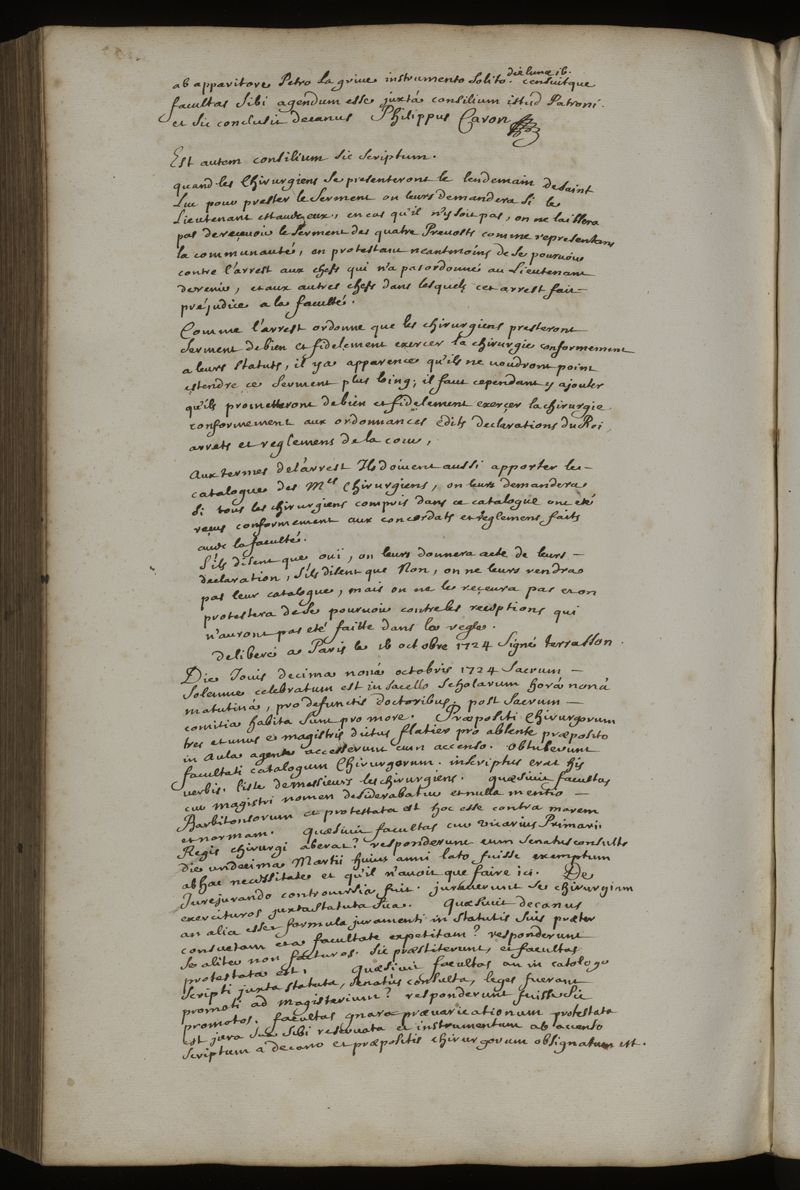 die lunæ 16.
ab apparitore Petro La grive instrumento solito. censuitque
facultas sibi agendum esse juxtá consilium istud Patroni.
et sic conclusit decanus Philippus Caron
Est autem consilium sic scriptum.
quand les Chirurgiens se presenteront le lendemain de saint
Luc pour prester le serment on leurs demandera si le
Lieutenant est avec eux, en cas qu'il n'y soit pas, on ne laissera
pas de recevoir le serment des quatre Prevosts comme representans
la communauté, en protestant neantmoins de se pourvoir
contre l'arrest aux chefs qui n'a pas ordonné au Lieutenant
de venir, et aux autres chefs dans lesquels cet arrest fait
préjudice a la faculté.
Comme l'arrest ordonne que les chirurgiens presteront
serment de bien et fidelement exercer la chirurgie conformement
a leurs statuts, il y a apparence qu'ils ne voudront point
estendre ce serment plus loing; il faut cependant y ajouter
qu'ils promettront de bien et fidelement exerçer la chirurgie
conformement aux ordonnances édits declarations du Roi,
arrets et reglemens de la cour,
Aux termes de l'arrest Ils doivent aussi apporter le
catalogue des Mes Chirurgiens, on leurs demandera
si tous les chirurgiens compris dans ce catalogue ont été
reçus conformement aux concordats et reglemens faits
avec la faculté.
S'ils disent que oui, on leurs donnera acte de leurs
declaration, s'ils disent que Non, on ne leurs rendra
pas leur catalogue, mais on ne le reçevra pas et on
protestera de se pourvoir contre les receptions qui
n'auront pas eté faitte dans la regle.
deliberé a Paris le 16 octobre 1724 signé terrasson.
Die Jovis decima noná octobris 1724 sacrum
solemne celebratum est in sacello scholarum horá noná
matutiná, pro defunctis doctoribus, post sacrum
comitia habita sunt pro more. Præpositi Chirurgorum
tres et unus e magistris dictus flatier pro absente præposito
in Aula agente accesserunt cum accenso. obtulerunt
facultati catalogum Chirurgorum. inscriptus erat his
verbis. liste de messieurs les chirurgiens. quæsivit facultas
cur magistri nomen desiderabatur et nulla mentio
Barbitonsorum et protestata est hoc esse contra morem
et normam. quæsivit facultas cur vicarius Primarii
Regis chirurgi aberat? responderunt eum senatusconsulto
die undecima Martii huius anni lato fuisse exemptum
ab hac necessitate et qu'il n'avoit que faire ici. De
Jurejurando controversia fuit. juraverunt se chirurgiam
exercituros juxta statuta sua. Quæsivit decanus
an alia esset formula juramenti in statutis suis præter
consuetam et a facultate expetitam? responderunt
se aliter non facturos. sic præstiterunt, et facultas
protestata est. quæsivit facultas an in catalogo
scripti juxta statuta, senatus consulta, leges fuerant
promoti ad magisterium? responderunt fuisse sic
promotos. facultas gnara prævaricationum protestata
est jura sua sibi reservata et instrumentum ab accenso
scriptum a decano et præpositis chirurgorum obsignatum est.